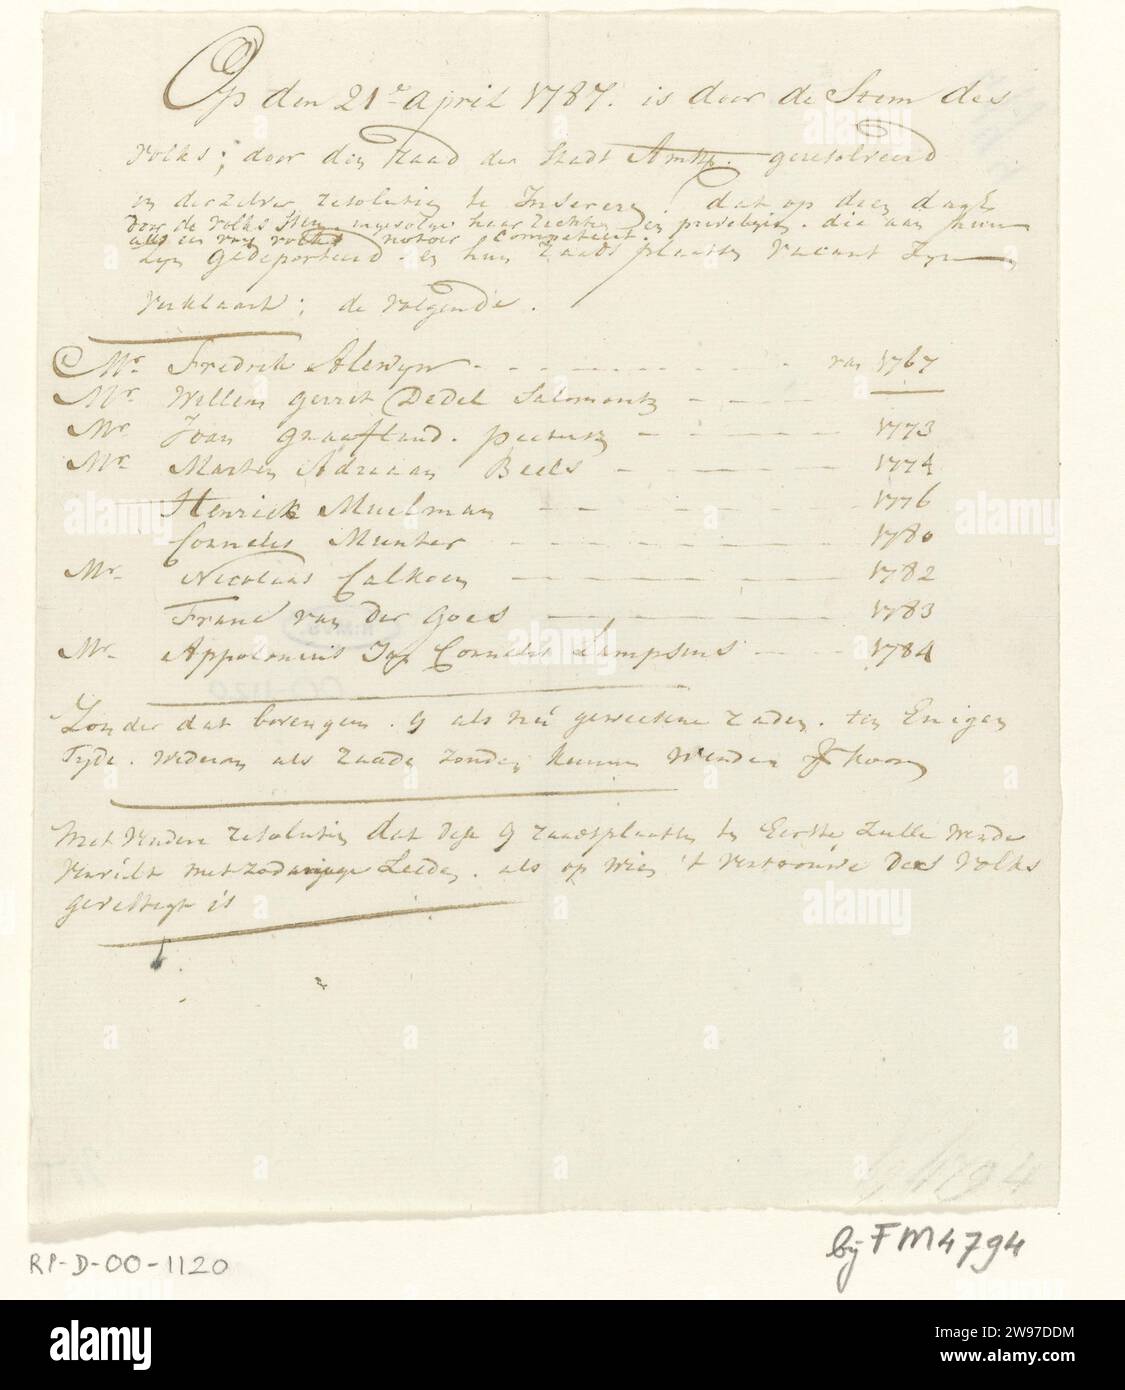 Op den 21e april 1787. is door de Stem des
volks; door den Raad der Stadt Amst. geresolveerd
en derzelver resolutien te Insereren. dat op dien dagE
door de volks Stem, ingevolge haar rechten en previlegien. die aan hun
als een vry volk notoir Competeert.
zyn gedeporteerd. en hun raads plaatsen vacant zyn
verklaart; de volgende.
Mr. Fredrik Alewyn van 1767
Mr. Willem gerrit Dedel Salomonsz
Mr Joan graafland. pietersz 1773
Mr. Marten Adriaan Beels 1774
Henrick Muelman 1776
Cornelis Munter 1780
Mr. Nicolaas Calkoen 1782
Franc van der goes 1783
Mr. Appolonius Jan Cornelis Lampsins 1784
Zonder dat bovengem. 9 als nu geweesene raden. ten Enigen
Tyde. wederom als raade zonden kunnen werden
Met verdere resolutien dat dese 9 raadsplaatsen ten Eerste zulle werde
vervult met zodanige Leeden. als op wien 't vertrouwe des volks
gevestigt is
RP-D-00-1120
bij FM 4794
alamy
Image ID: 2W97DDM
www.alamy.com